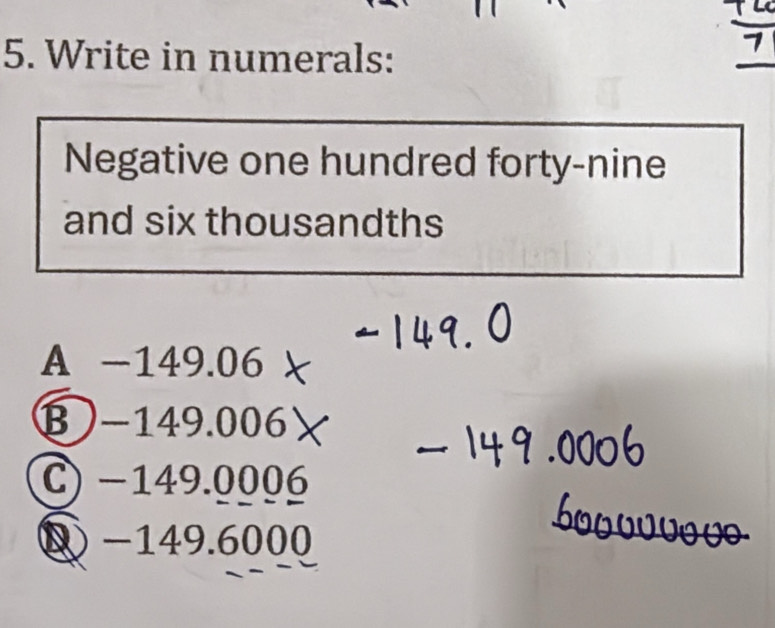 5. Write in numerals:
Negative one hundred forty-nine
and six thousandths
-149.0
A −149.06 x
B −149.006 x
-149.0006
C −149.0006
D −149.6000